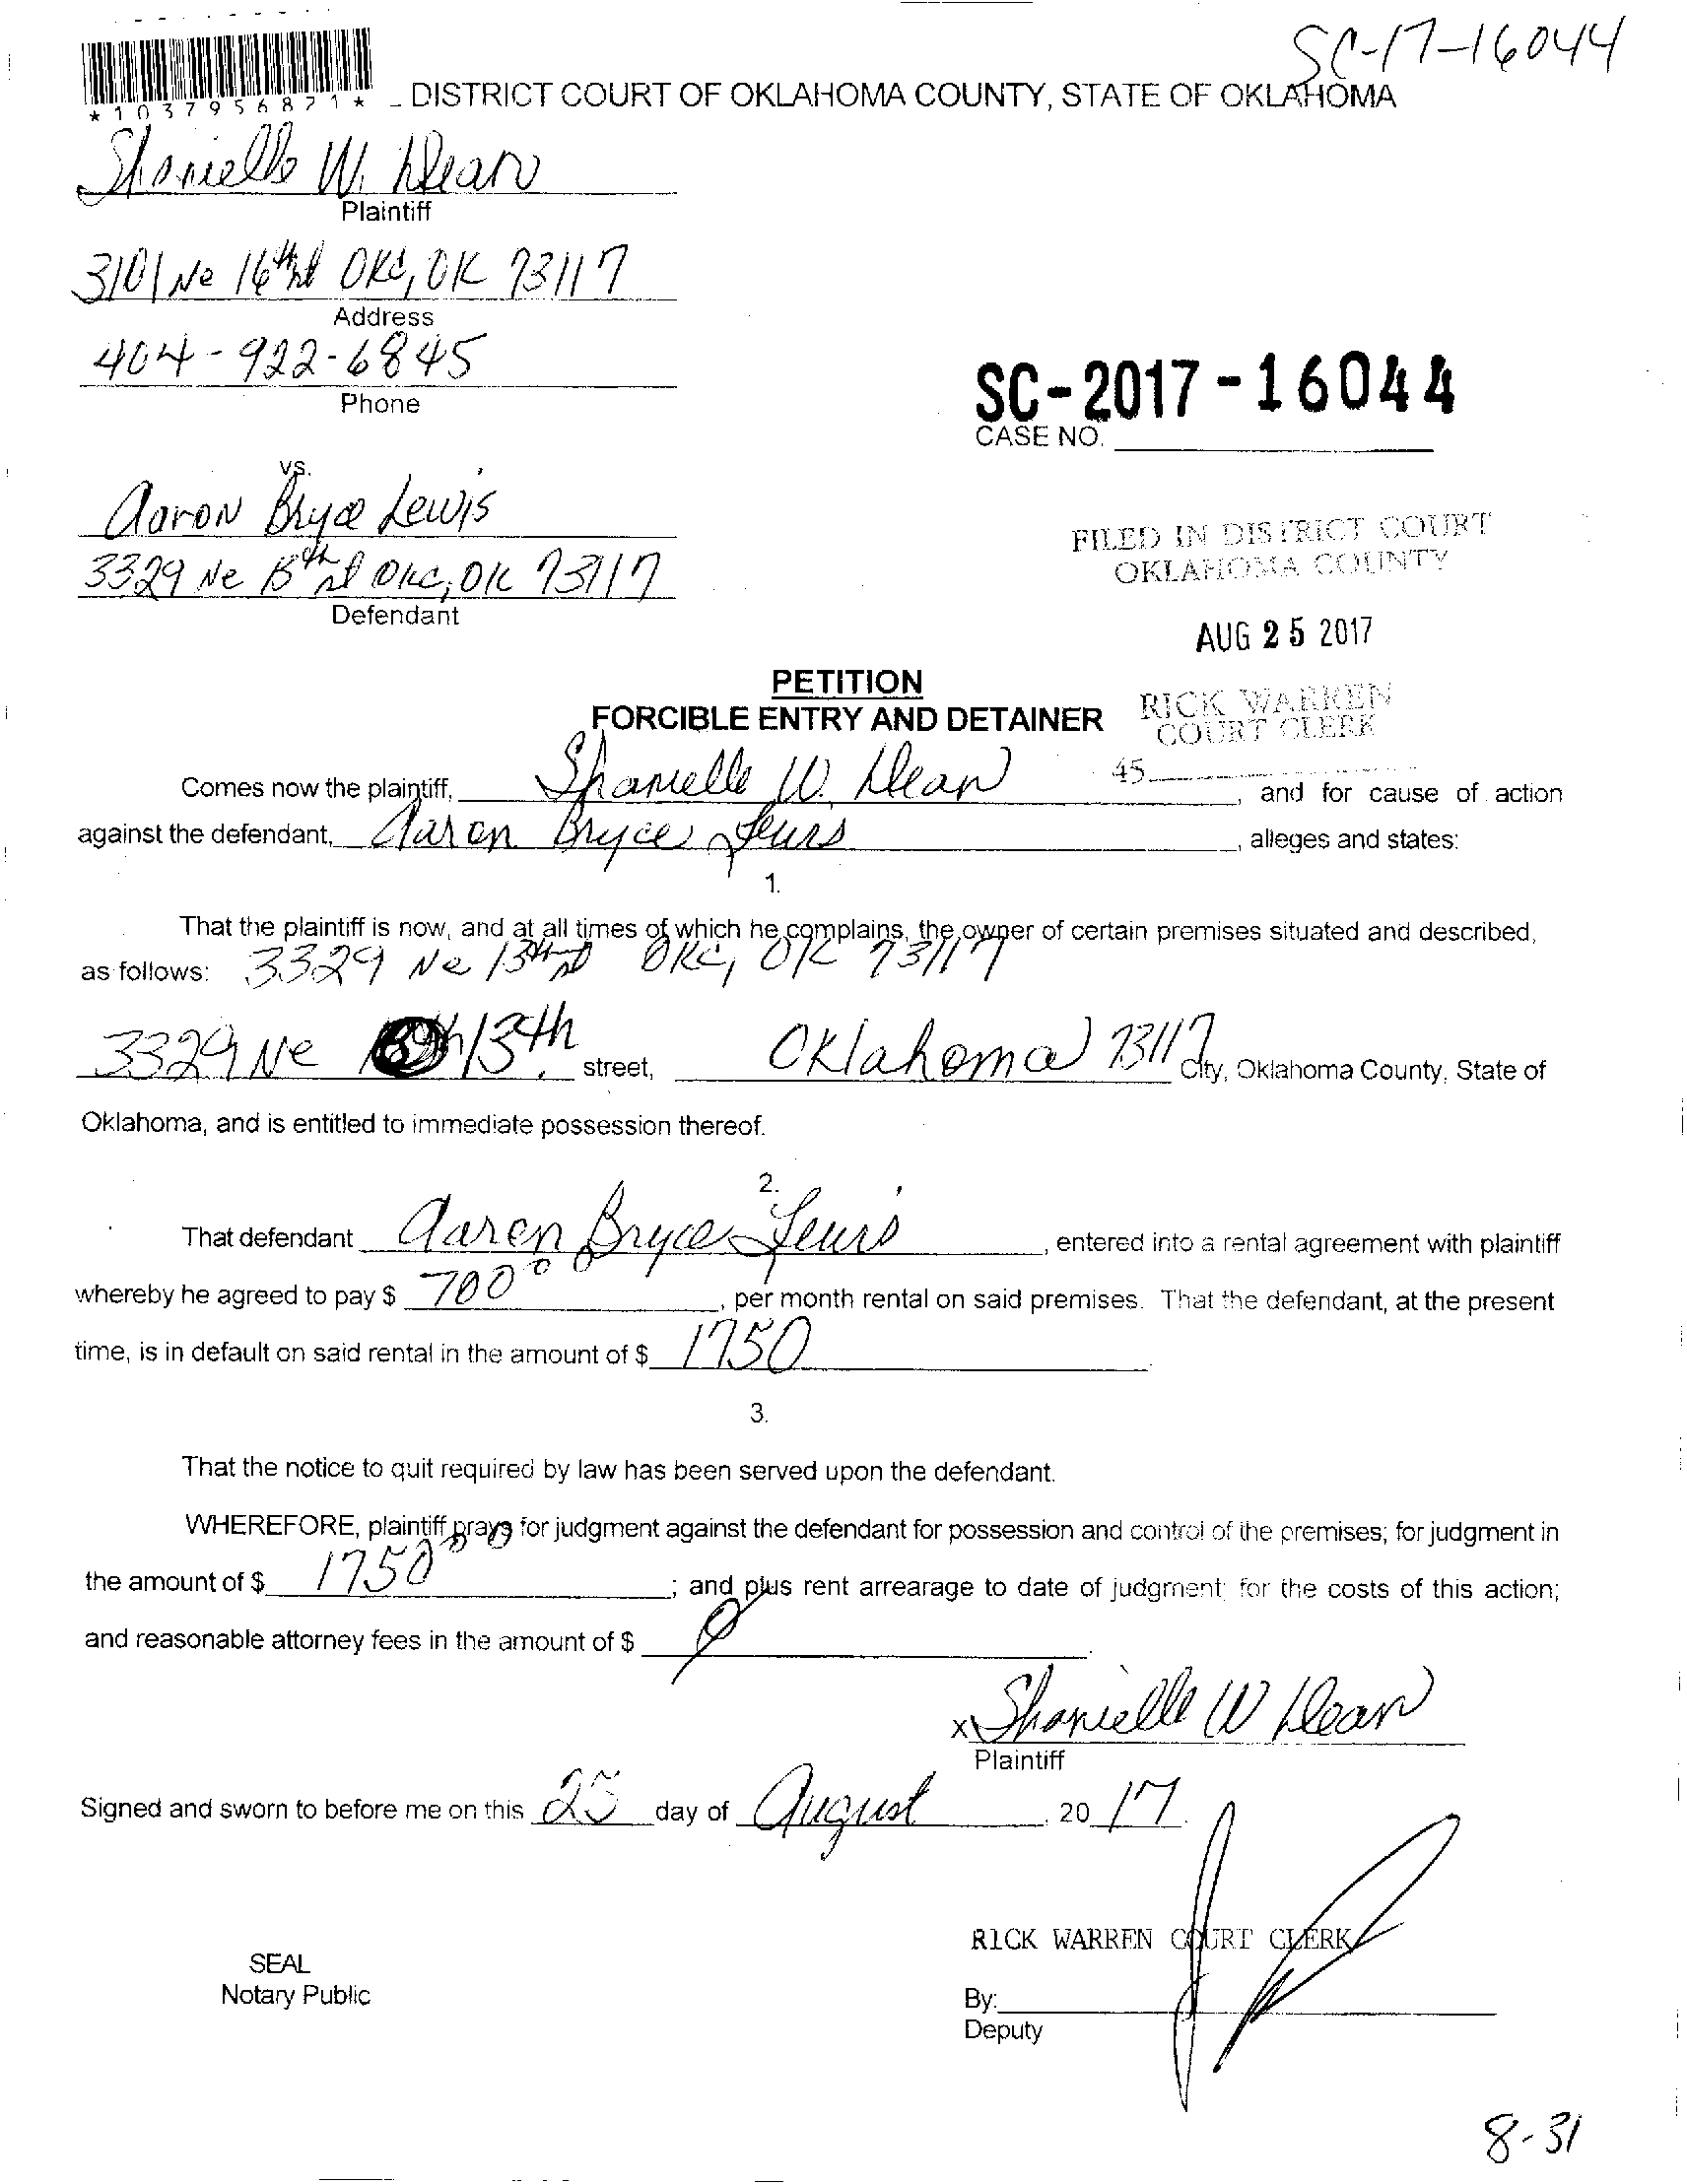 SC-17-16044
*1037956871*
DISTRICT COURT OF OKLAHOMA COUNTY, STATE OF OKLAHOMA
Shanielle W. Dean
Plaintiff
3101 Ne 16th st OKC, OK 73117
Address
404-922-6845
Phone
SC-2017-16044
CASE NO.
vs.
Aaron Bryce Lewis
3329 Ne 13th st OKC, OK 73117
Defendant
FILED IN DISTRICT COURT
OKLAHOMA COUNTY
AUG 25 2017
RICK WARREN
COURT CLERK
45
PETITION
FORCIBLE ENTRY AND DETAINER
Comes now the plaintiff, Shanielle W. Dean, and for cause of action
against the defendant, Aaron Bryce Lewis, alleges and states:
1.
That the plaintiff is now, and at all times of which he complains, the owner of certain premises situated and described,
as follows: 3329 Ne 13th st OKC, OK 73117
3329 Ne 13th street, Oklahoma 73117 City, Oklahoma County, State of
Oklahoma, and is entitled to immediate possession thereof.
2.
That defendant Aaron Bryce Lewis, entered into a rental agreement with plaintiff
whereby he agreed to pay $ 700 00, per month rental on said premises. That the defendant, at the present
time, is in default on said rental in the amount of $ 1750.
3.
That the notice to quit required by law has been served upon the defendant.
WHEREFORE, plaintiff prays for judgment against the defendant for possession and control of the premises; for judgment in
the amount of $ 1750 00; and plus rent arrearage to date of judgment; for the costs of this action;
and reasonable attorney fees in the amount of $
x Shanielle W Dean
Plaintiff
Signed and sworn to before me on this 25 day of August, 20 17.
RICK WARREN COURT CLERK
SEAL
Notary Public
By:
Deputy
8-31